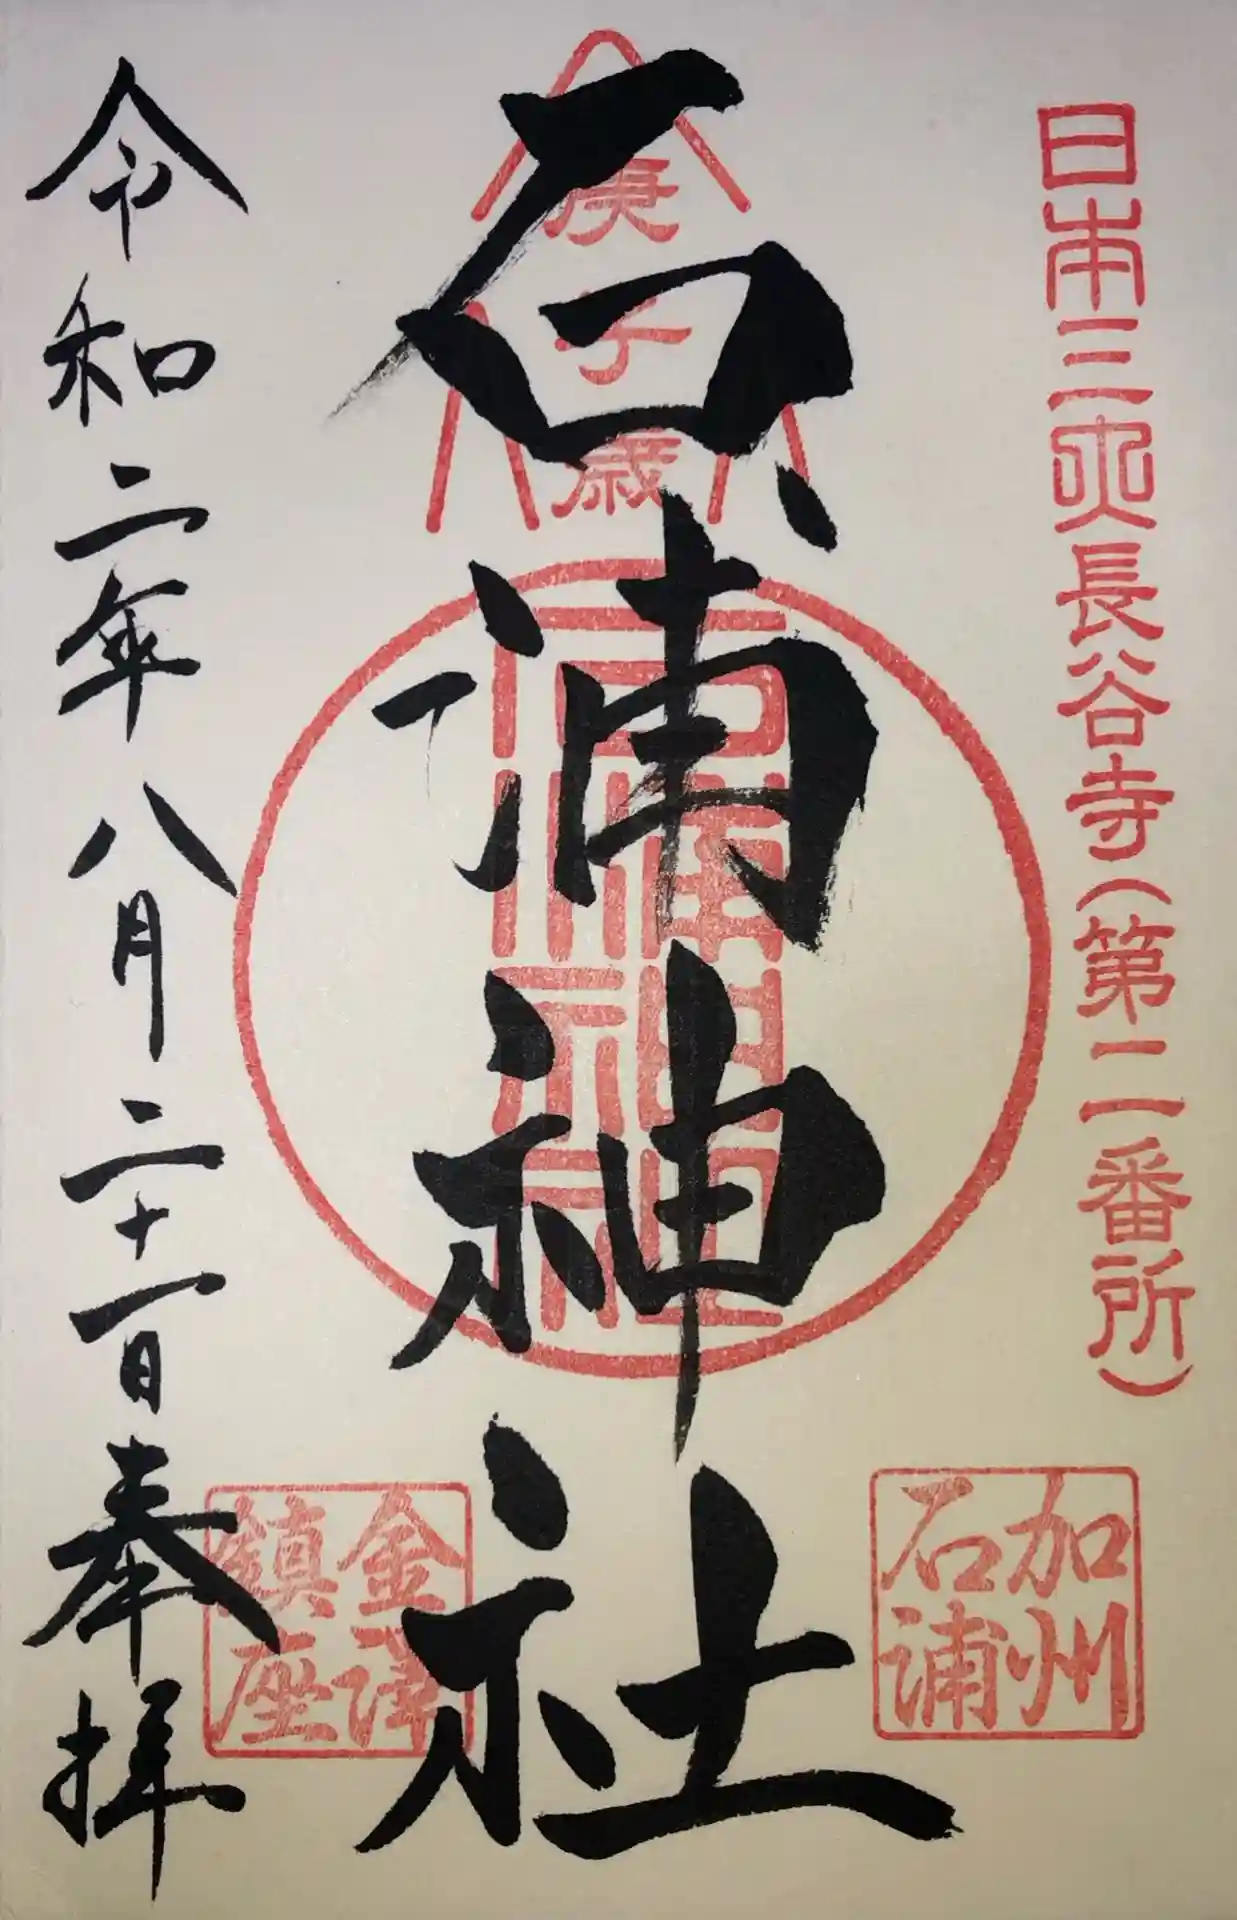 日本三大長谷寺(第三番所)
加州
石浦
庚子歳
石浦神社
石浦神社
金澤
鎮座
令和二年八月二十一日奉拝